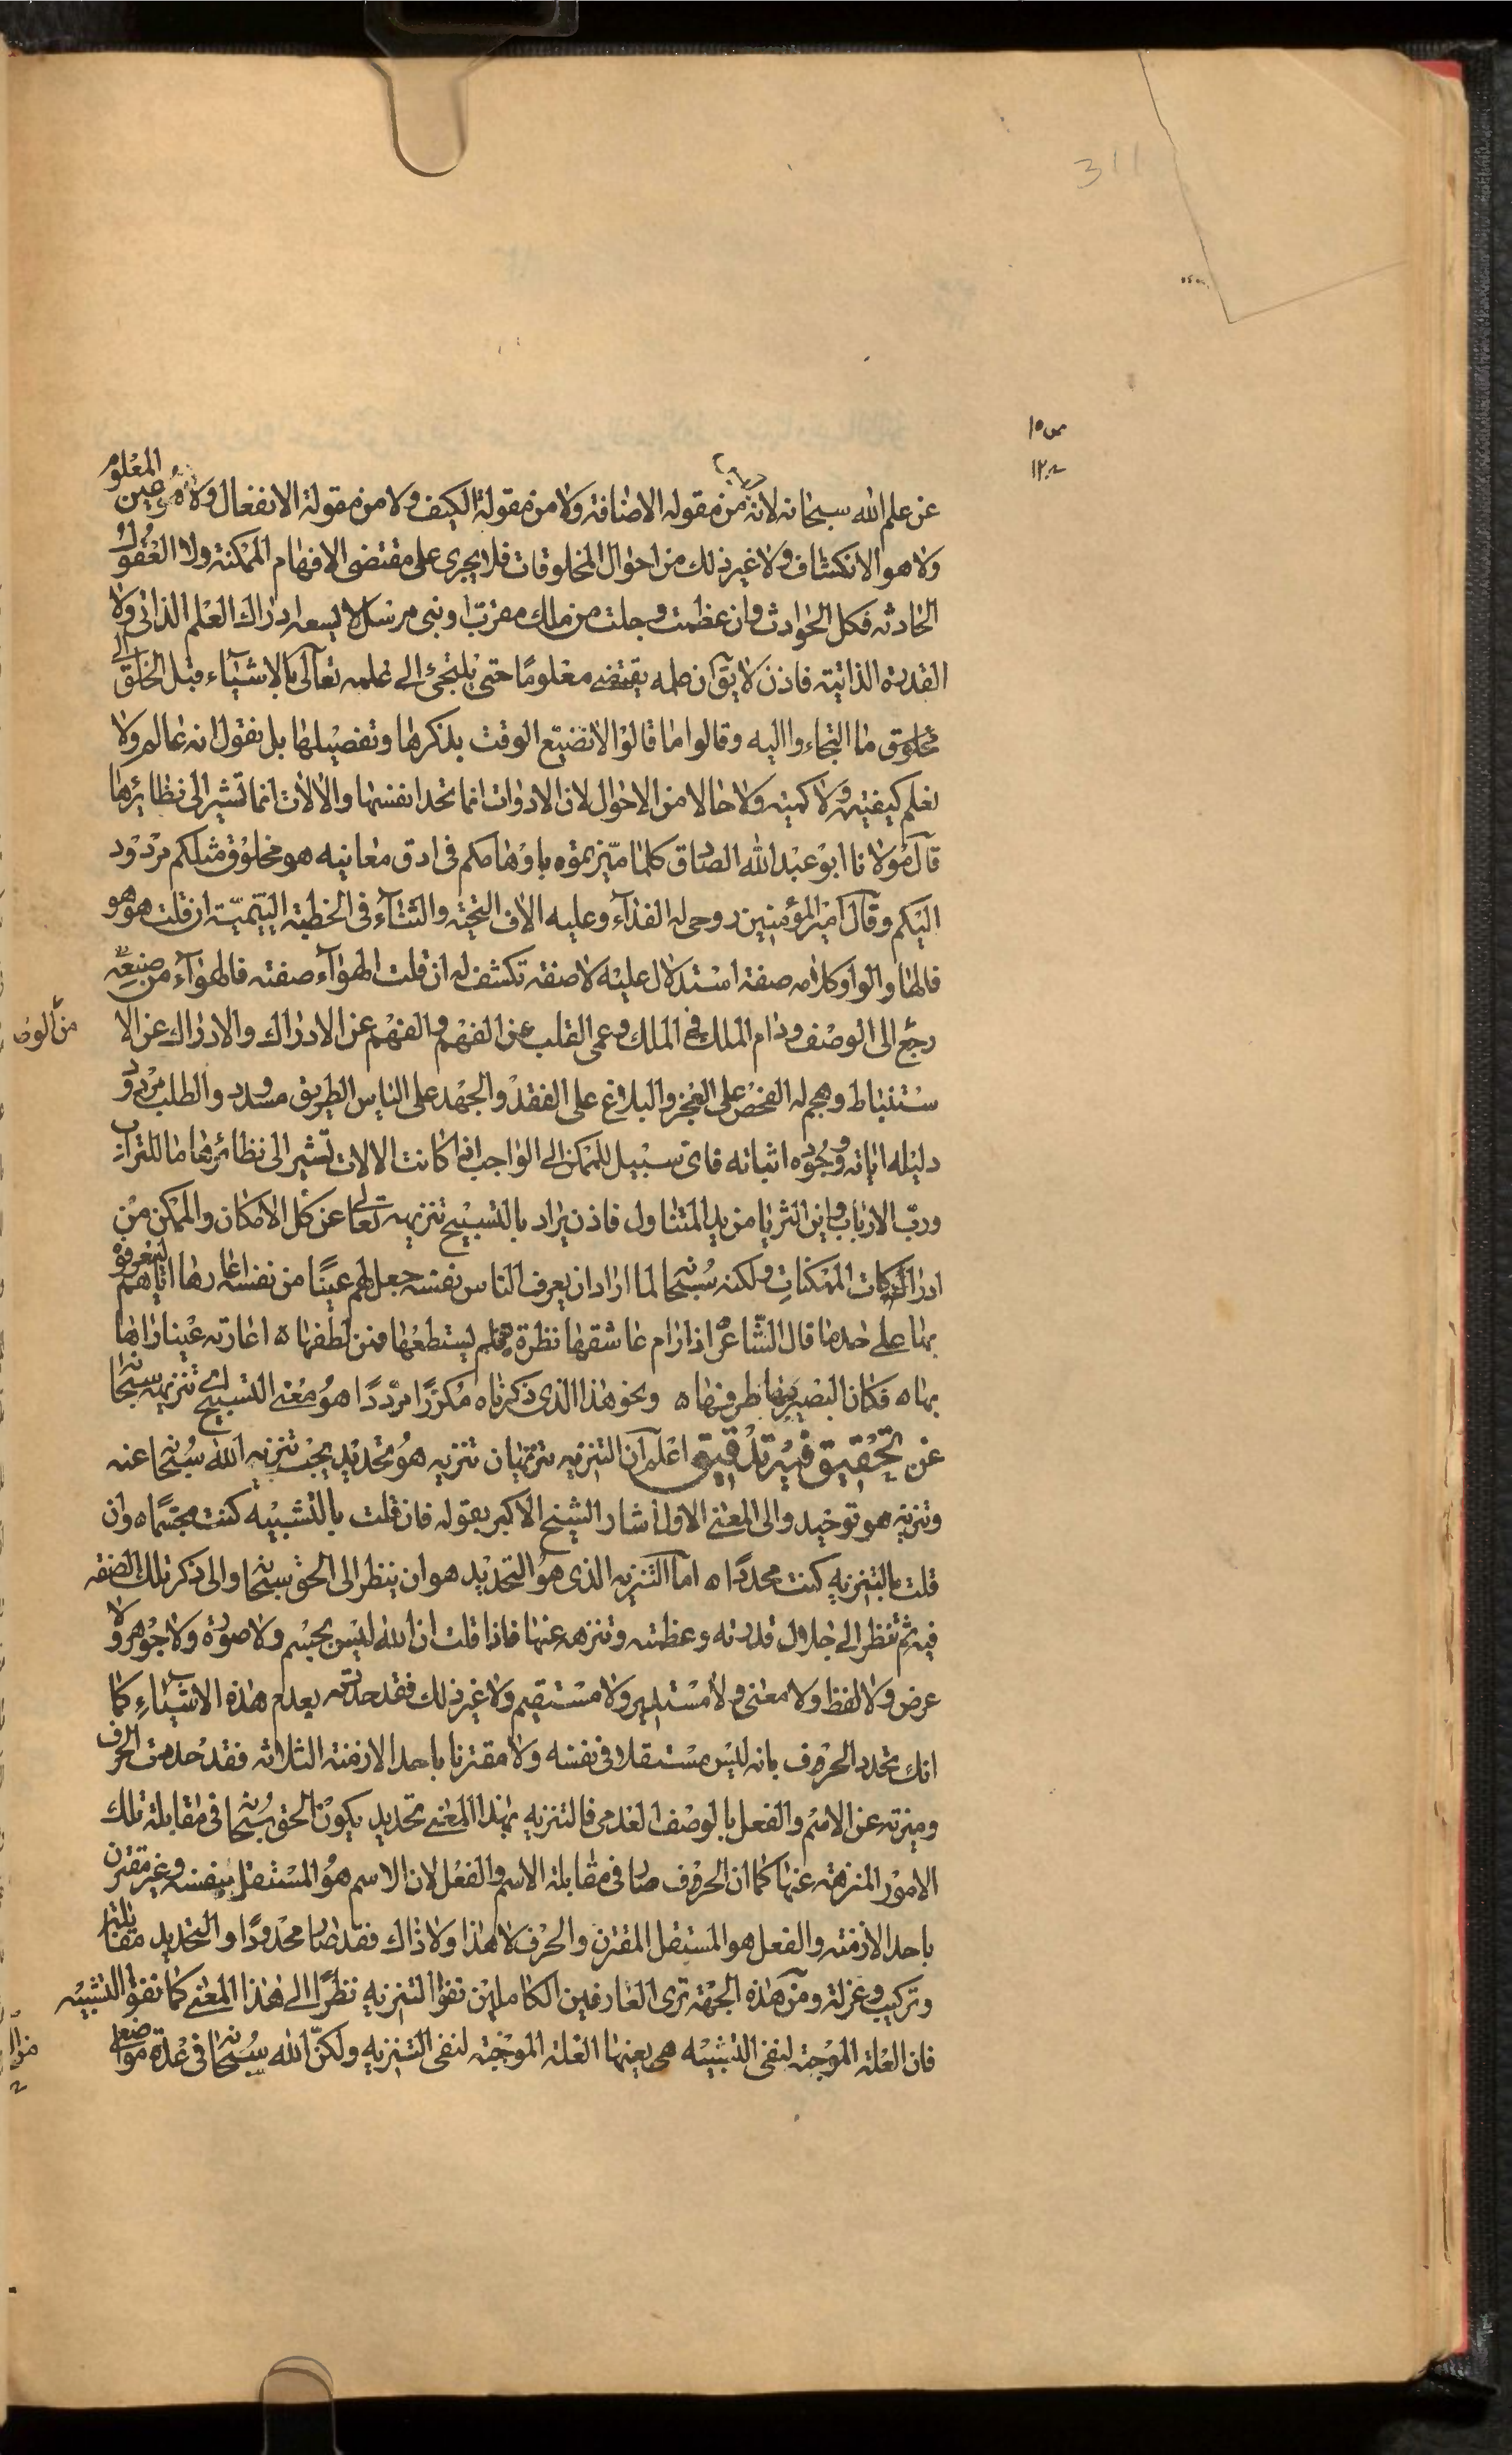 311
ص ١٥
ع ١٢
عن علم الله سبحانه لانه من مقوله الاضافة ولا من مقولة الكيف ولا من مقولة الانفعال ولا هو عين المعلوم
ولا هو الانكشاف ولا غير ذلك من احوال المخلوقات فلا يجرى على مقتضى الافهام الممكنة ولا العقول
الحادثه فكل الحوادث وان عظمت وجلت من ملك مقرب او نبى مرسل لا يسعه ادراك العلم الذاتى ولا
القدرة الذاتية فاذن لا يق ان علمه يقتضى معلومًا حتى يلتجئ الى علمه تعالى بالاشياء قبل الخلق الى
مخلوق ما التجاءوا اليه وقالوا ما قالوا لا نضيع الوقت بذكرها وتفصيلها بل نقول انه عالم ولا
نعلم كيفيته ولا كميته ولا حالا من الاحوال لان الادوات انما تحد انفسها والالات انما تشير الى نظائرها
قال مولانا ابو عبد الله الصادق كلما ميزتموه باوهامكم فى ادق معانيه هو مخلوق مثلكم مردود
اليكم وقال امير المؤمنين روحى له الفداء وعليه الاف التحية والثناء فى الخطبة اليتيمية ان قلت هو هو
فالهاء والواو كلامه صفة استدلال عليه لا صفة تكشف له ان قلت الهواء صفته فالهواء من صنعه
رجع الى الوصف ودام الملك فى الملك وعمى القلب عن الفهم والفهم عن الادراك والادراك عن الا
من الوصف
ستنباط وهجم له الفحص على العجز والبلاغ على الفقد والجهد على الياس الطريق مسدود والطلب مردود
دليله اياته وجوده اثباته فاى سبيل للممكن الى الواجب اذا كانت الالات تشير الى نظائرها ما للتراب
ورب الارباب واين الثريا من يد المتناول فاذن يراد بالتسبيح تنزيهه تعالى عن كل الامكان والممكن من
ادراكات الممكنات ولكنه سبحانه لما اراد ان يعرف الناس نفسه جعل لهم عينًا من نفسه اعارها اياهم ليعرفوه
بها على حد ما قال الشاعر اذا رام عاشقها نظرة فلم يستطعها فمن لطفها ه اعارته عينا راها
بها ه فكان البصير بها طرفها ه ونحو هذا الذى ذكرناه مكررًا مرددًا هو معنى التسبيح اى تنزيهه سبحانه
عن تحقيق فيه تدقيق اعلم ان التنزيه تنزيهان تنزيه هو تحديد يجب تنزيه الله سبحانه عنه
وتنزيه هو توحيد والى المعنى الاول اشار الشيخ الاكبر بقوله فان قلت بالتشبيه كنت مجسما ه وان
قلت بالتنزيه كنت محددًا ه اما التنزيه الذى هو التحديد هو ان ينظر الى الحق سبحانه والى ذكر تلك الصفه
فيه ثم تنظر الى جلال قدرته وعظمته وتنزهه عنها فاذا قلت ان الله ليس بجسم ولا صورة ولا جوهر ولا
عرض ولا لفظ ولا معنى ولا مستدير ولا مستقيم ولا غير ذلك فقد حددته بعدم هذه الاشياء كما
انك تحدد الحروف بانه ليس مستقلا فى نفسه ولا مقترنا باحد الازمنة الثلاثه فقد حددت الحرف
وميزته عن الاسم والفعل بالوصف العدمى فالتنزيه بهذا المعنى تحديد يكون الحق سبحانه فى مقابلة تلك
الامور المنزهة عنها كما ان الحروف صار فى مقابلة الاسم والفعل لان الاسم هو المستقل بنفسه وغير مقترن
باحد الازمنه والفعل هو المستقل المقترن والحرف لا هذا ولا ذاك فقد صار محدودًا والتحديد مقابلة
وتركيب وعزلة ومن هذه الجهة ترى العارفين الكاملين نفوا التنزيه نظرًا الى هذا المعنى كما نفوا التشبيه
فان العلة الموجبة لنفى التشبيه هى بعينها العلة الموجبة لنفى التنزيه ولكن الله سبحانه فى عدة مواضع